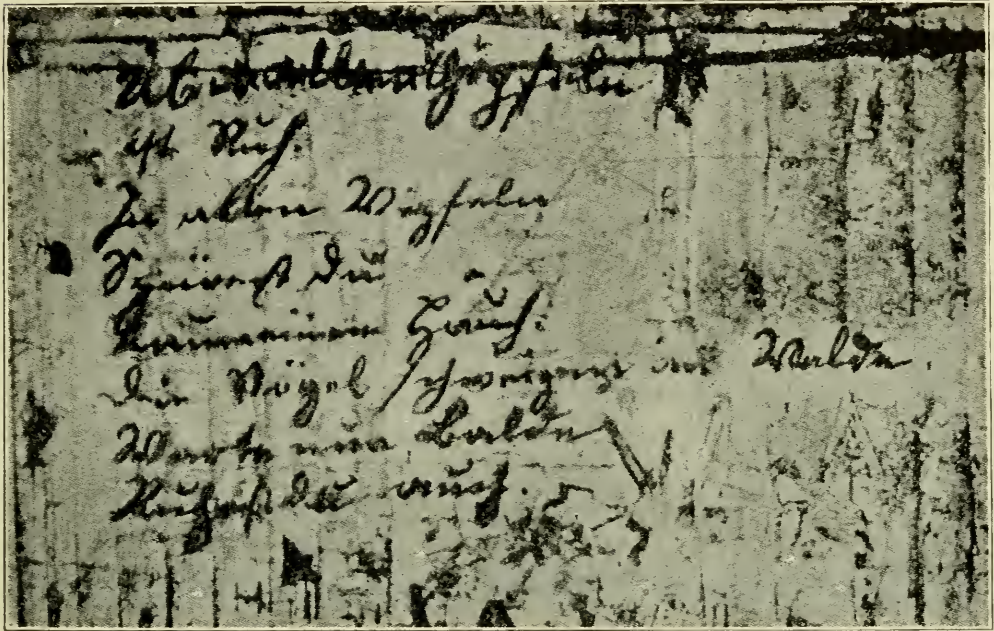 Über allen Gipfeln
ist Ruh.
In allen Wipfeln
Spürest du
Kaum einen Hauch:
Die Vögel schweigen im Walde.
Warte nur balde
Ruhest du auch.